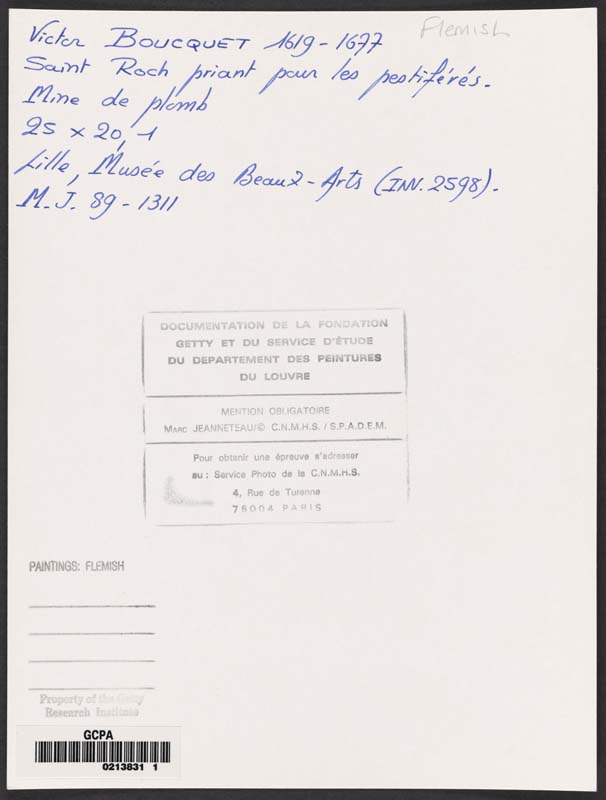 Victor BOUCQUET 1619-1677
Flemish
Saint Roch priant pour les pestiférés.
Mine de plomb
25 x 20,1
Lille, Musée des Beaux-Arts (INV. 2598).
M.J. 89-1311
DOCUMENTATION DE LA FONDATION
GETTY ET DU SERVICE D'ÉTUDE
DU DEPARTEMENT DES PEINTURES
DU LOUVRE
MENTION OBLIGATOIRE
MARC JEANNETEAU/© C.N.M.H.S. / S.P.A.D.E.M.
Pour obtenir une épreuve s'adresser
au : Service Photo de la C.N.M.H.S.
4, Rue de Turenne
75004 PARIS
PAINTINGS: FLEMISH
Property of the Getty
Research Institute
GCPA
0213831 1